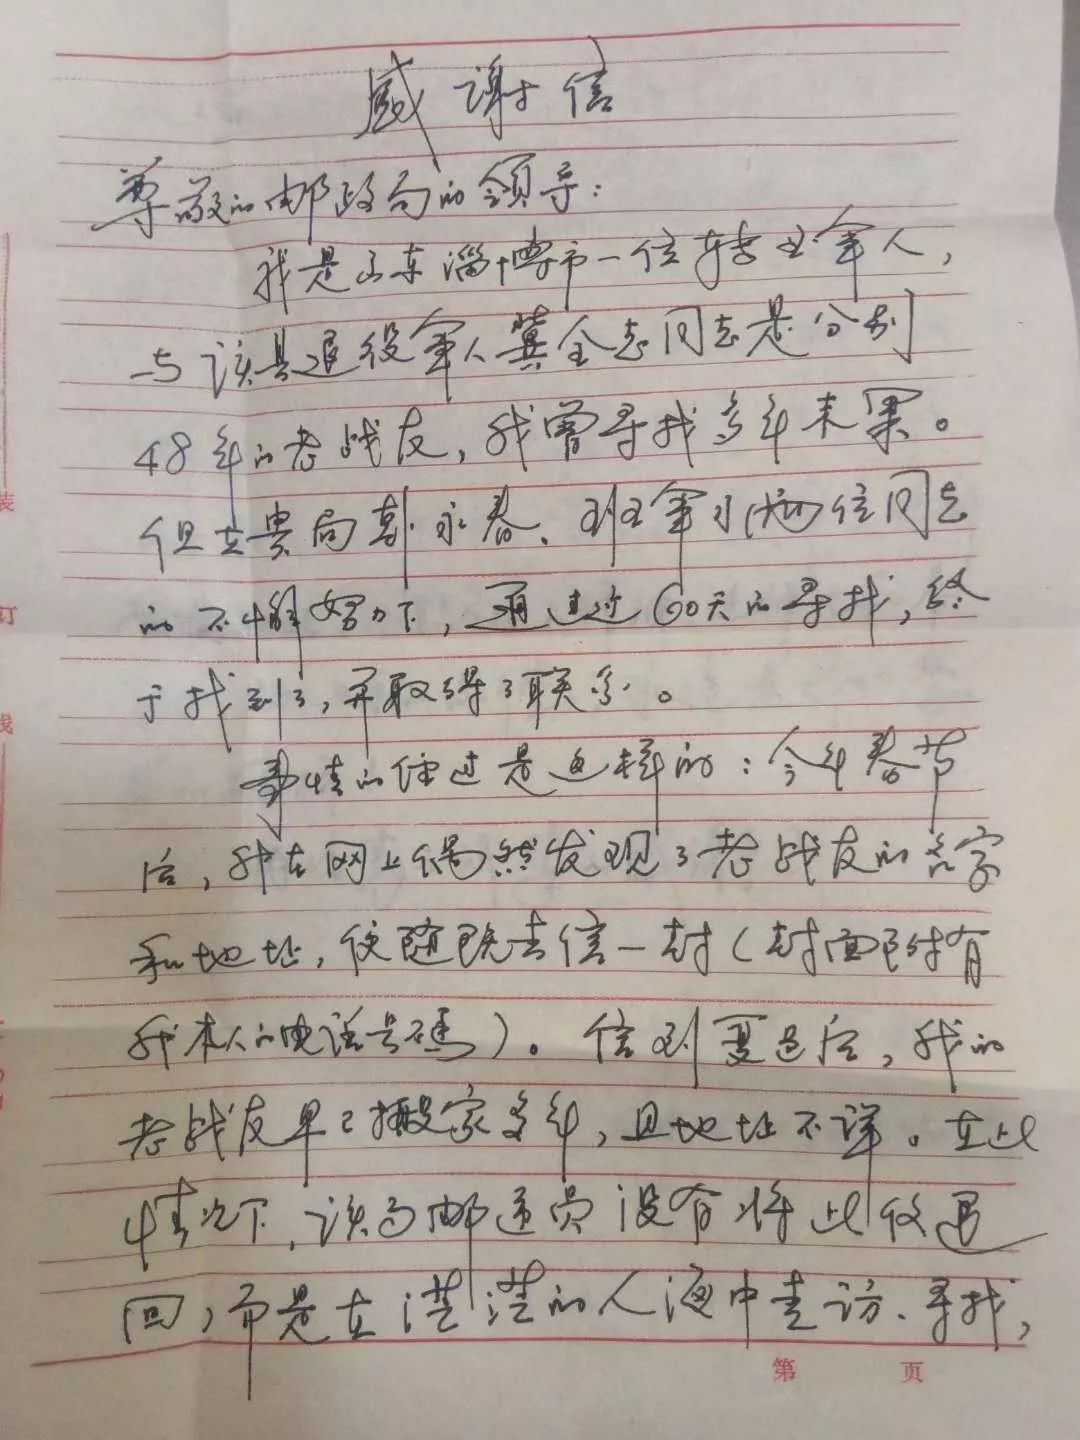 感谢信
尊敬的邮政局的领导：
我是山东淄博市一位转业军人，
与该县退役军人冀全志同志是分别
48年的老战友，我曾寻找多年未果。
但在贵局郭永春、班军小两位同志
的不懈努力下，通过近60天的寻找，终
于找到了，并取得了联系。
事情的经过是这样的：今年春节
后，我在网上偶然发现了老战友的名字
和地址，便随既去信一封（封面附有
我本人的电话号码）。信到夏邑后，我的
老战友早已搬家多年，且地址不详。在此
情况下，该局邮递员没有将此信退
回，而是在茫茫的人海中走访、寻找，
第 页
装
订
线